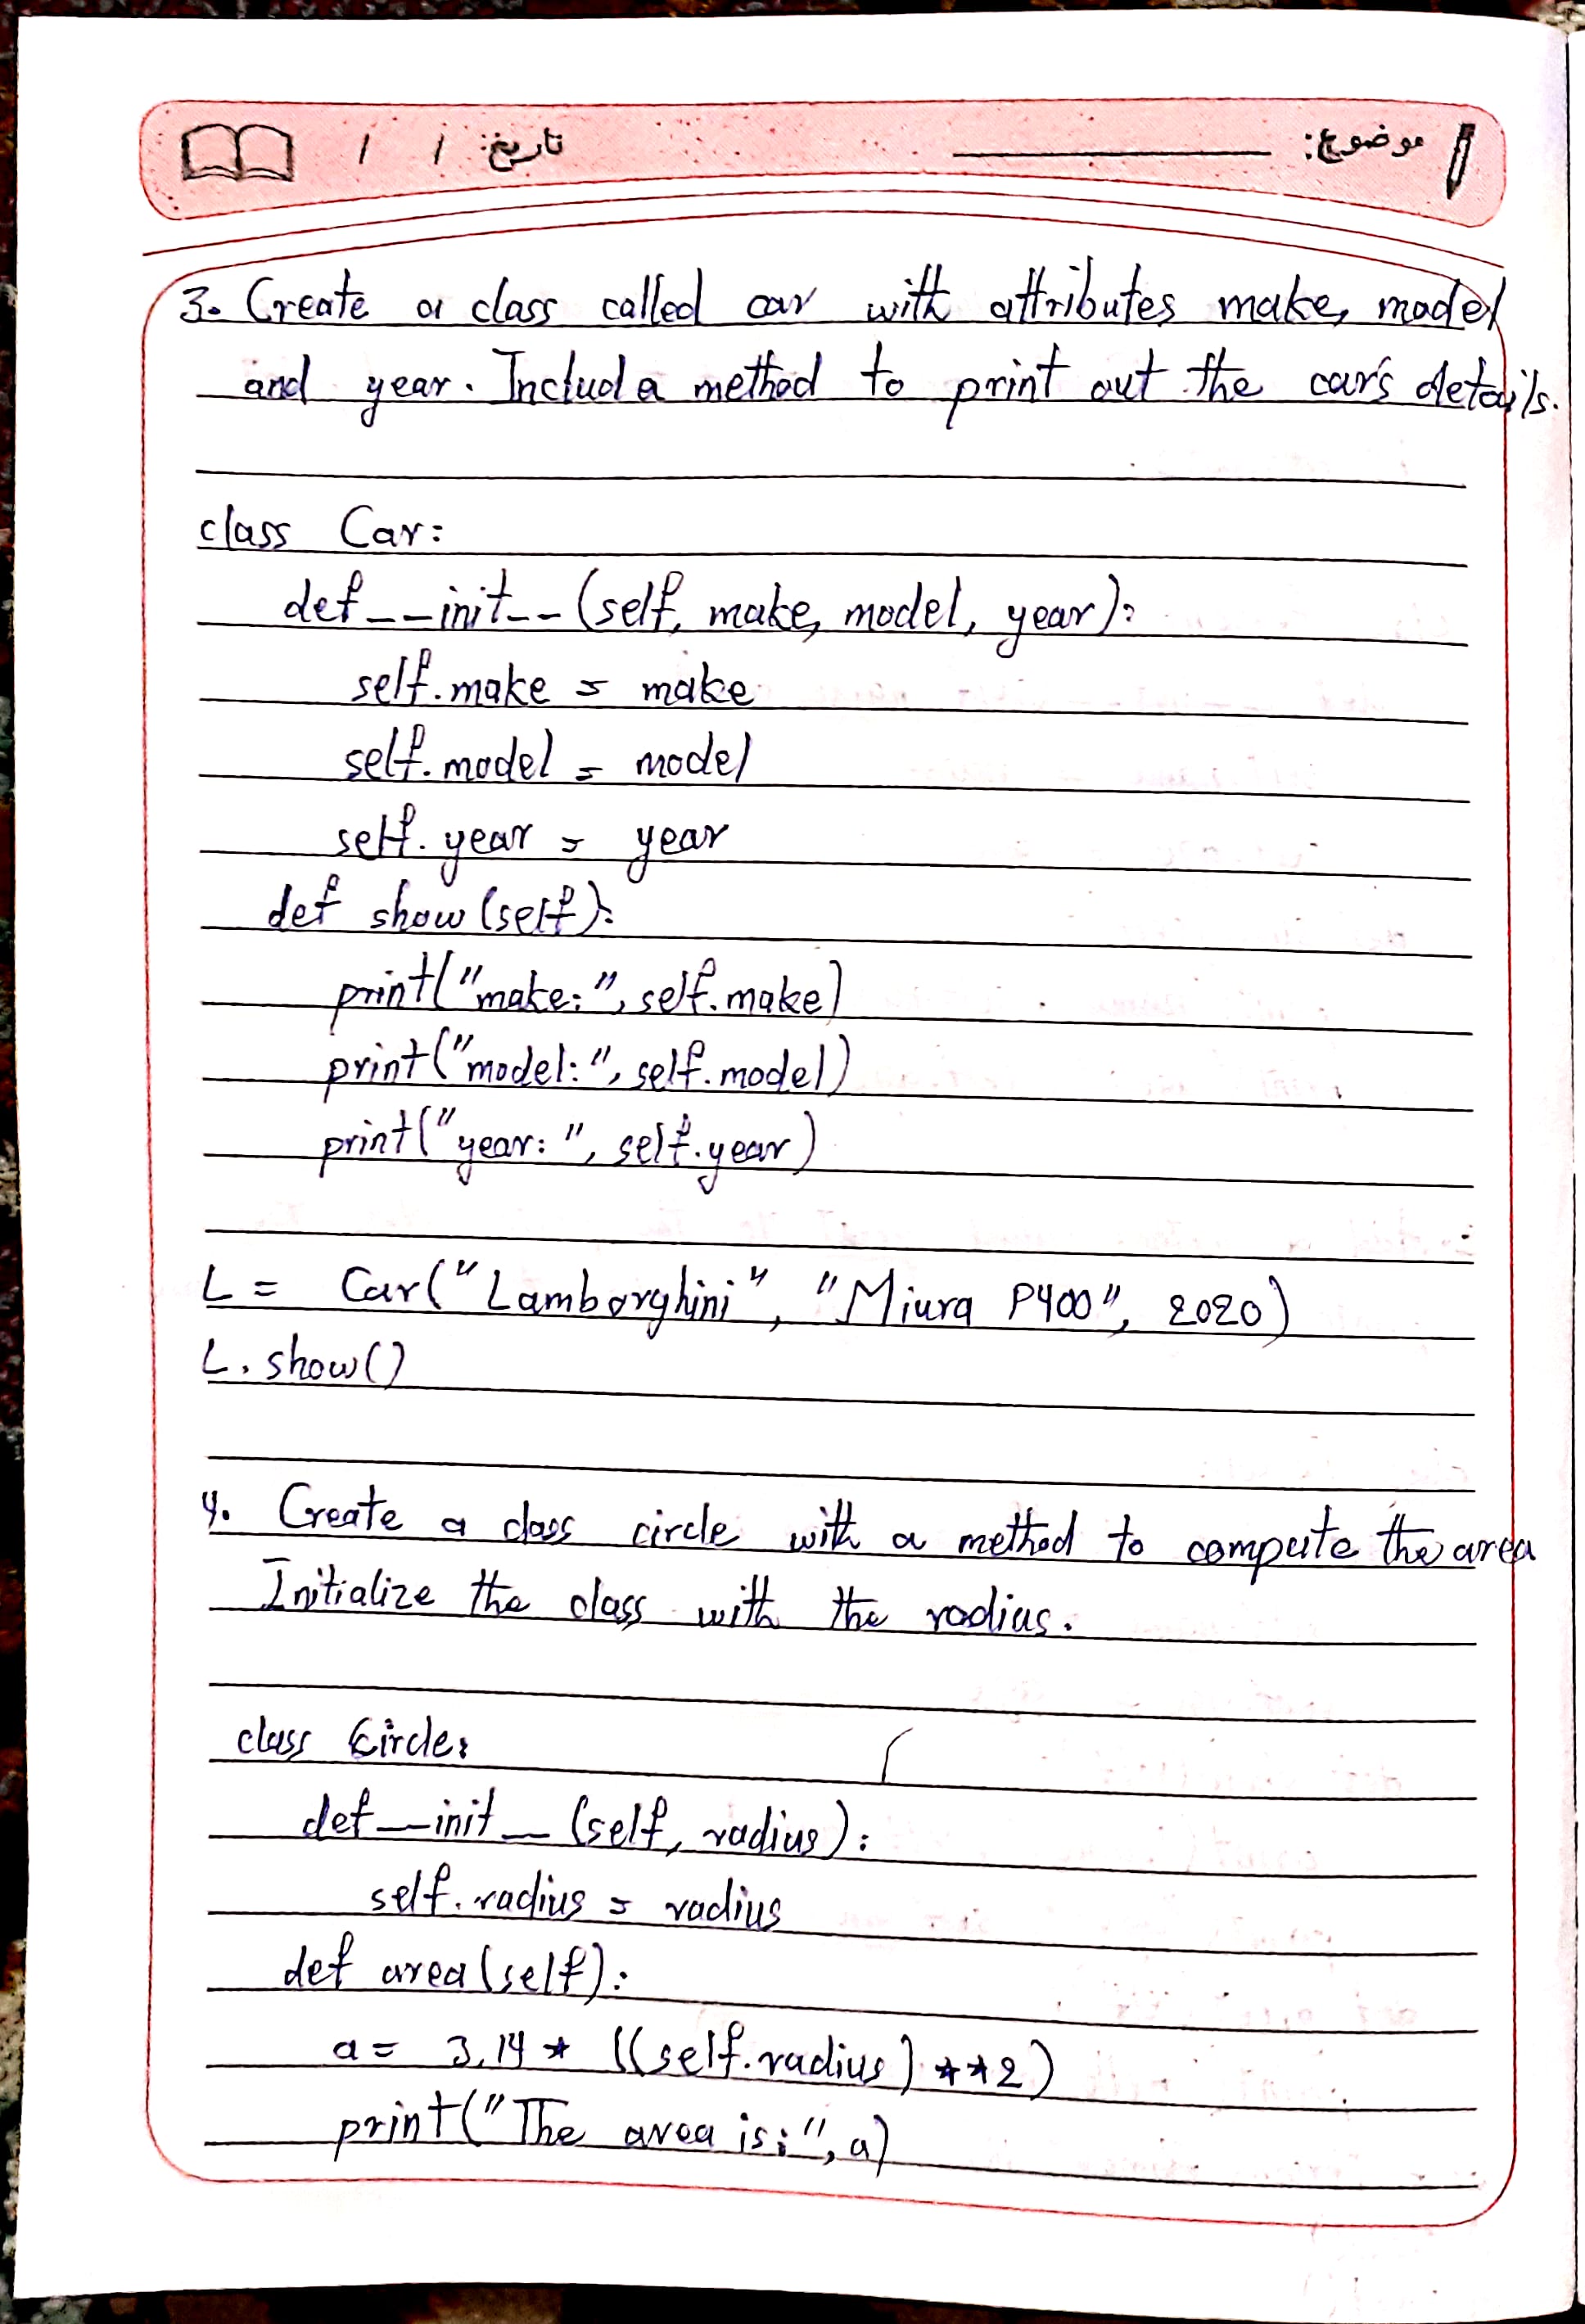 موضوع: تاریخ: / /
3. Create a class called car with attributes make, model
and year. Include a method to print out the car's details.
class Car:
def __init__(self, make, model, year):
self.make = make
self.model = model
self.year = year
def show(self):
print("make:", self.make)
print("model:", self.model)
print("year:", self.year)
L = Car("Lamborghini", "Miura P400", 2020)
L.show()
4. Create a class circle with a method to compute the area
Initialize the class with the radius.
class Circle:
def __init__(self, radius):
self.radius = radius
def area(self):
a = 3.14 * ((self.radius)**2)
print("The area is:", a)